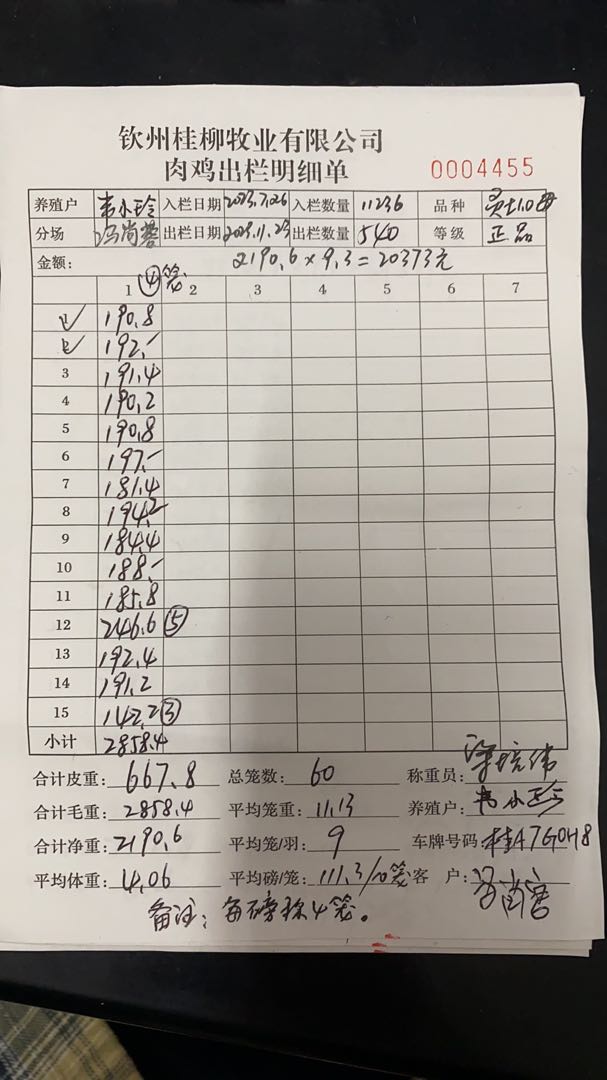 钦州桂柳牧业有限公司
肉鸡出栏明细单 0004455
养殖户 韦小玲 入栏日期 2023.7.26 入栏数量 11236 品种
分场 入/出栏日期 2023.11.23 出栏数量 540 等级 正品
金额: 2190.6×9.3=20373元
1 ④笼 2 3 4 5 6 7
1 190.8
2 192.-
3 191.4
4 190.2
5 190.8
6 197.-
7 181.4
8 194.-
9 184.4
10 188.-
11 185.8
12 246.6 ⑤
13 192.4
14 191.2
15 142.2 ③
小计 2858.4
合计皮重: 667.8 总笼数: 60 称重员:
合计毛重: 2858.4 平均笼重: 11.13 养殖户: 韦小玲
合计净重: 2190.6 平均笼/羽: 9 车牌号码:
平均体重: 4.06 平均磅/笼: 111.3/10笼 客 户:
备注: 每磅称4笼。